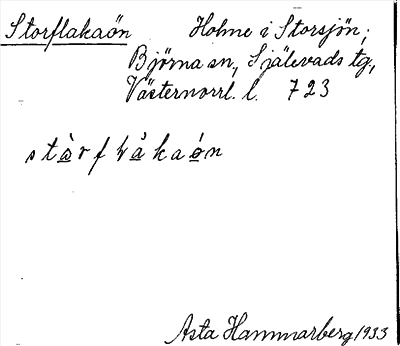 Storflakaön Holme i Storsjön;
Björna sn, Själevads tg,
Västernorrl. l. 723
Asta Hammarberg 1933